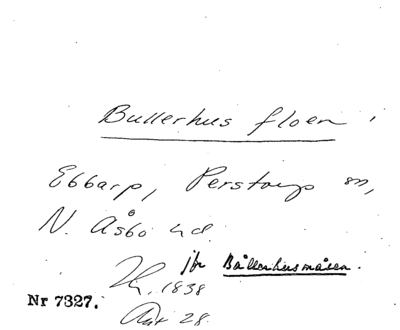 Bullerhus floen
Ebbarp, Perstorps sn,
N. Åsbo hd.
jfr Bällerhusmåsen.
1838
Nr 7327.
28.